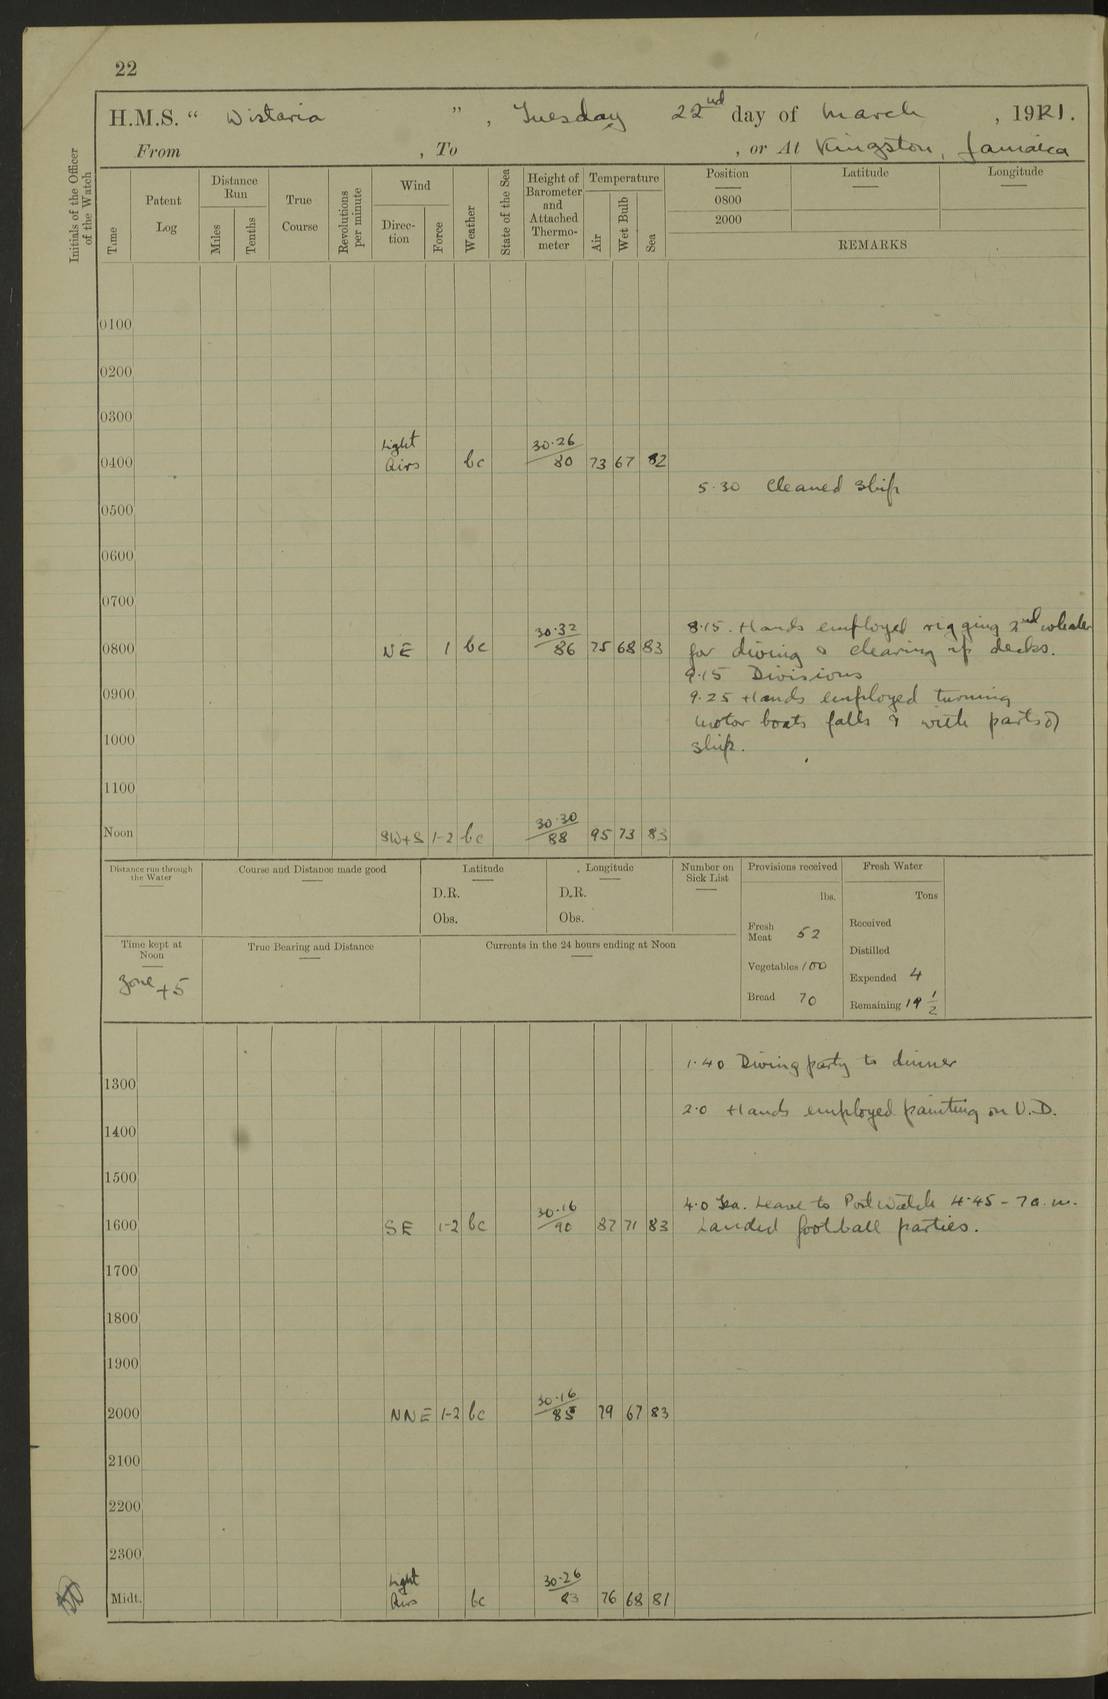 22
H.M.S. " Wistaria ", Tuesday 22nd day of March, 1921.
From , To , or At Kingston, Jamaica
Initials of the Officer of the Watch
Time
Patent Log
Distance Run
Miles
Tenths
True Course
Revolutions per minute
Wind
Direction
Force
Weather
State of the Sea
Height of Barometer and Attached Thermometer
Temperature
Air
Wet Bulb
Sea
Position Latitude Longitude
0800
2000
REMARKS
0100
0200
0300
0400 Light Airs bc 30.26/80 73 67 82
5.30 Cleaned Ship
0500
0600
0700
8.15. Hands employed rigging 2nd whaler
0800 NE 1 bc 30.32/86 75 68 83
for diving & clearing up decks.
9.15 Divisions
0900
9.25 Hands employed turning
motor boats falls & with parts of
1000
ship.
1100
Noon SW+S 1-2 bc 30.30/88 95 73 83
Distance run through the Water
Course and Distance made good
Latitude
D.R.
Obs.
Longitude
D.R.
Obs.
Number on Sick List
Provisions received
lbs.
Fresh Meat 52
Vegetables 100
Bread 70
Fresh Water
Tons
Received
Distilled
Expended 4
Remaining 19 1/2
Time kept at Noon
Zone +5
True Bearing and Distance
Currents in the 24 hours ending at Noon
1.40 Diving party to dinner
1300
2.0 Hands employed painting on U.D.
1400
1500
4.0 Tea. Leave to Port Watch 4.45 - 7 a.m.
1600 SE 1-2 bc 30.16/90 87 71 83
Landed football parties.
1700
1800
1900
2000 NNE 1-2 bc 30.16/85 79 67 83
2100
2200
2300
Midt. Light Airs bc 30.26/83 76 68 81